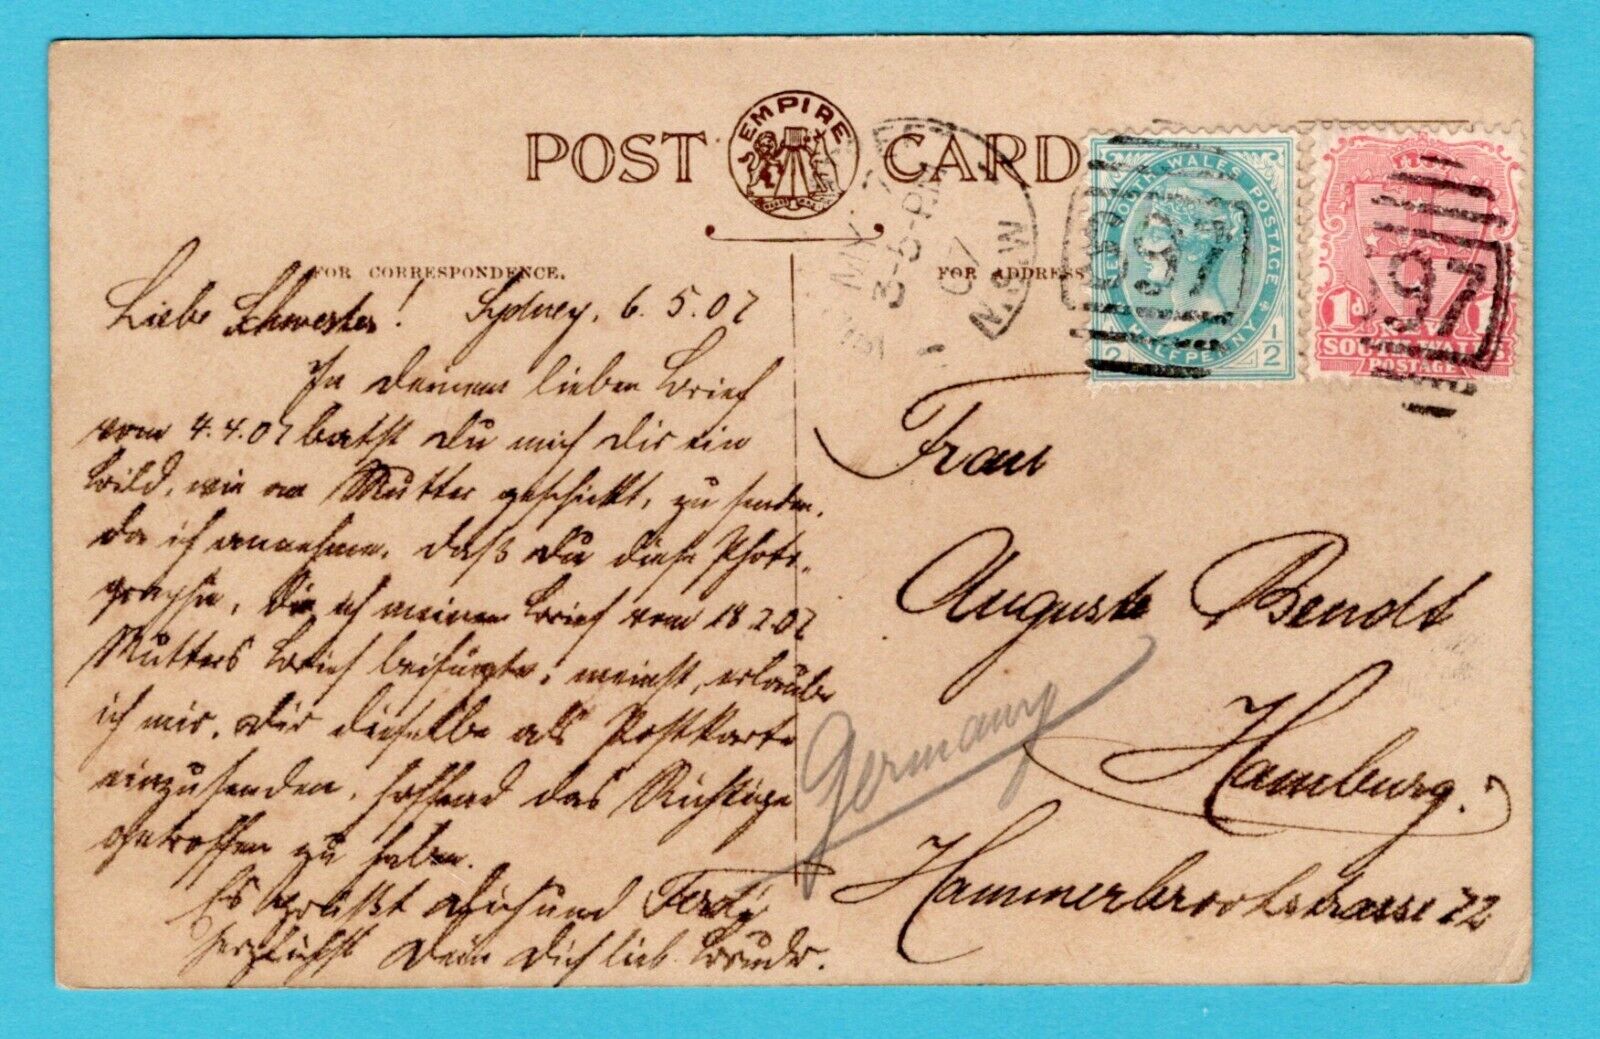 POST CARD
EMPIRE
FOR CORRESPONDENCE.
FOR ADDRESS
MY
3-5-PM
07
N.S.W
NEW SOUTH WALES POSTAGE
HALFPENNY
1/2
1/2
197
1d
1
NEW
SOUTH WALES
POSTAGE
197
Liebe Schwester! Sydney, 6.5.07
In deinem lieben Brief
vom 4.4.07 batst Du mich Dir ein
Bild, wie an Mutter geschickt, zu senden.
Da ich annehme, daß Du diese Photo-
graphie, die ich meinem Brief vom 18 2 07
Mutters Brief beifügte, meinst, erlaube
ich mir, Dir dieselbe als Postkarte
einzusenden, hoffend das Richtige
getroffen zu haben.
Es grüßt Dich und Ferdy
herzlichst Dein Dich lieb. Bruder.
Frau
Auguste Bendt
Hamburg.
Hammerbrookstrasse 72
Germany